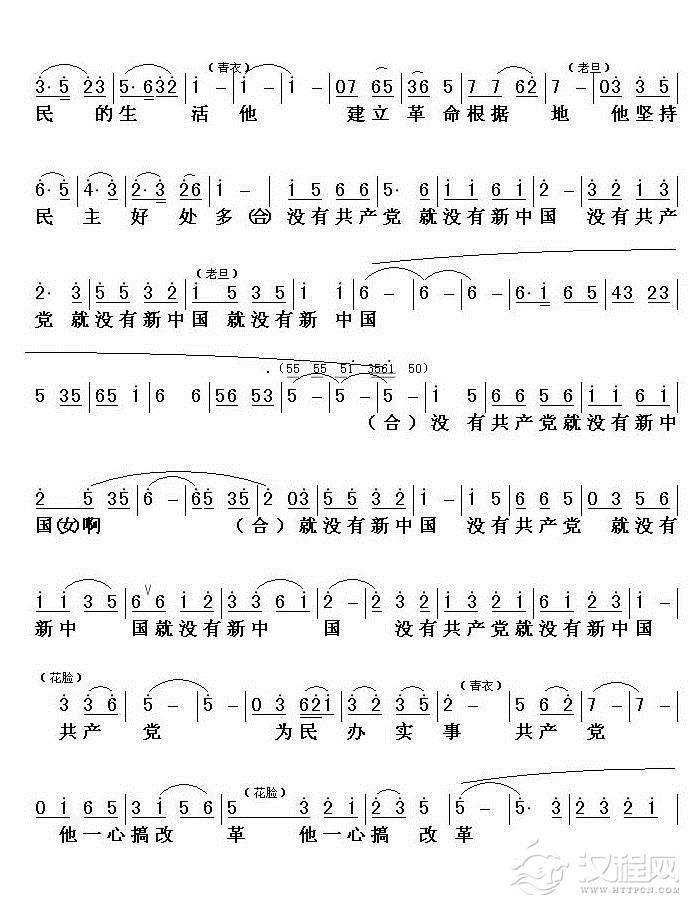 （青衣） （老旦）
3·5 23 | 5·632 | i - | i - | i - | 07 65 | 36 5 | 7 7 62 | 7 - | 03 3 5 |
民 的生 活他 建立革 命根据 地 他坚持
6·5 | 4·3 | 2·3 26 | i - | i 5 6 6 | 5· 6 | i i 6 i | 2 - | 3 2 i 3 |
民 主 好 处多(合)没有共产党 就没有新中国 没有共产
（老旦）
2· 3 | 5 5 3 2 | i 5 3 5 | i i | 6 - | 6 - | 6 - | 6·i 6 5 | 43 23 |
党 就没有新中国 就没有新 中国
（55 55 5i 356i 50）
5 35 | 65 i | 6 6 | 56 53 | 5 - | 5 - | 5 - | i 5 | 6 6 5 6 | i i 6 i |
（合）没 有共产党就没有新中
2 5 35 | 6 - | 65 35 | 2 03 | 5 5 3 2 | i - | i 5 | 6 6 5 | 0 3 5 6 |
国(女)啊 （合）就没有新中国 没有共产党 就没有
i i 3 5 | 6 6 i 2 | 3 3 6 i | 2 - | 2 3 2 | i 3 2 i | 6 i 2 3 | i - |
新中 国就没有新中 国 没有共产党就没有新中国
（花脸） （青衣）
3 3 6 | 5 - | 5 - | 0 3 62i | 2 3 5 3 | 2 - | 5 6 2 | 7 - | 7 - |
共产 党 为民 办 实 事 共产 党
（花脸）
0 i 6 5 | 3 i 5 6 | 5 3 | 3 2 i | 2 3 5 | 5 - | 5· 3 | 2 3 2 i |
他一心搞改 革 他一心搞 改革
汉程网
WWW.HTTPCN.COM